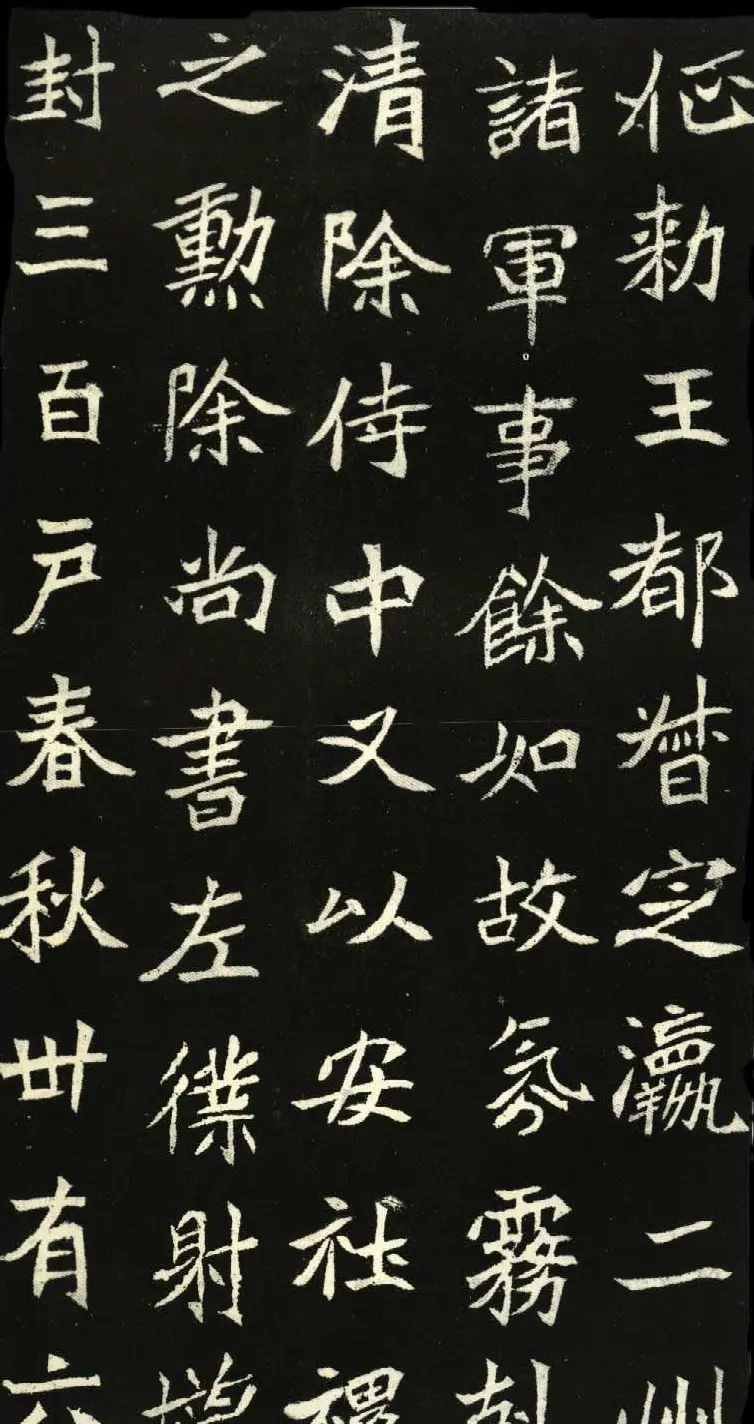 征勑王都督定瀛二州
諸軍事餘如故氛霧剋
清除侍中又以安社稷
之勳除尚書左僕射增
封三百户春秋卅有六